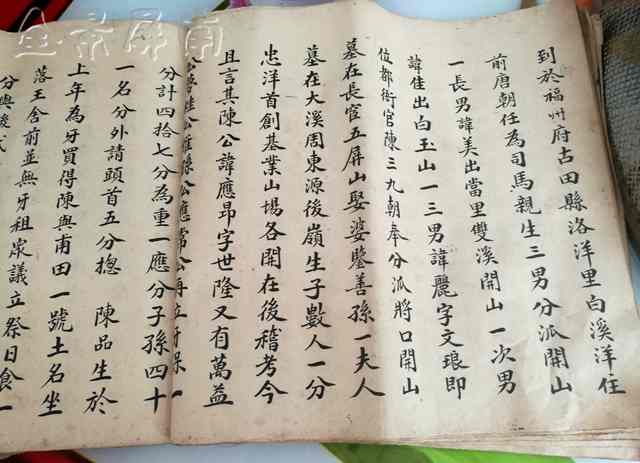 到於福州府古田縣洛洋里白溪洋任
前唐朝任為司馬親生三男分派開山
一長男諱美出當里雙溪開山一次男
諱佳出白玉山一三男諱麗字文琅即
位都衙官陳三九朝奉分派將口開山
墓在長官五屏山娶婆墬善孫一夫人
墓在大溪周東源後嶺生子數人一分
忠洋首創基業山場各開在後稽考今
且言其陳公諱應昂字世隆又有萬益
公 公 孫公應常公再立
分計四拾七分為重一應分子孫四十
一名分外請頭首五分摠 陳品生於
上年為牙買得陳與甫田一號土名坐
落王舍前並無牙祖眾議立祭日食一
分與